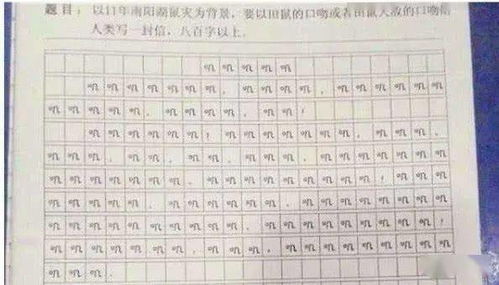 题目：以11年南阳湖鼠灾为背景，要以田鼠的口吻或者田鼠天敌的口吻给
人类写一封信，八百字以上.
叽叽叽叽叽
叽叽叽叽叽叽叽，叽叽叽叽叽，叽叽叽叽叽
叽叽叽叽叽，叽叽叽叽，叽叽！
叽叽叽叽叽叽！叽叽叽叽叽叽叽叽，叽叽叽，
叽叽，叽叽叽，叽叽，叽叽叽叽，叽叽叽叽叽叽叽
叽叽叽叽叽叽叽，叽叽叽叽叽叽叽叽！叽叽叽
叽叽叽叽，叽叽叽叽叽，叽叽叽叽叽叽叽叽叽
叽叽叽叽叽叽叽叽叽叽，叽叽叽叽叽叽叽叽叽
叽叽叽叽叽叽，叽叽，叽叽叽，叽叽叽叽叽叽叽
叽叽叽.